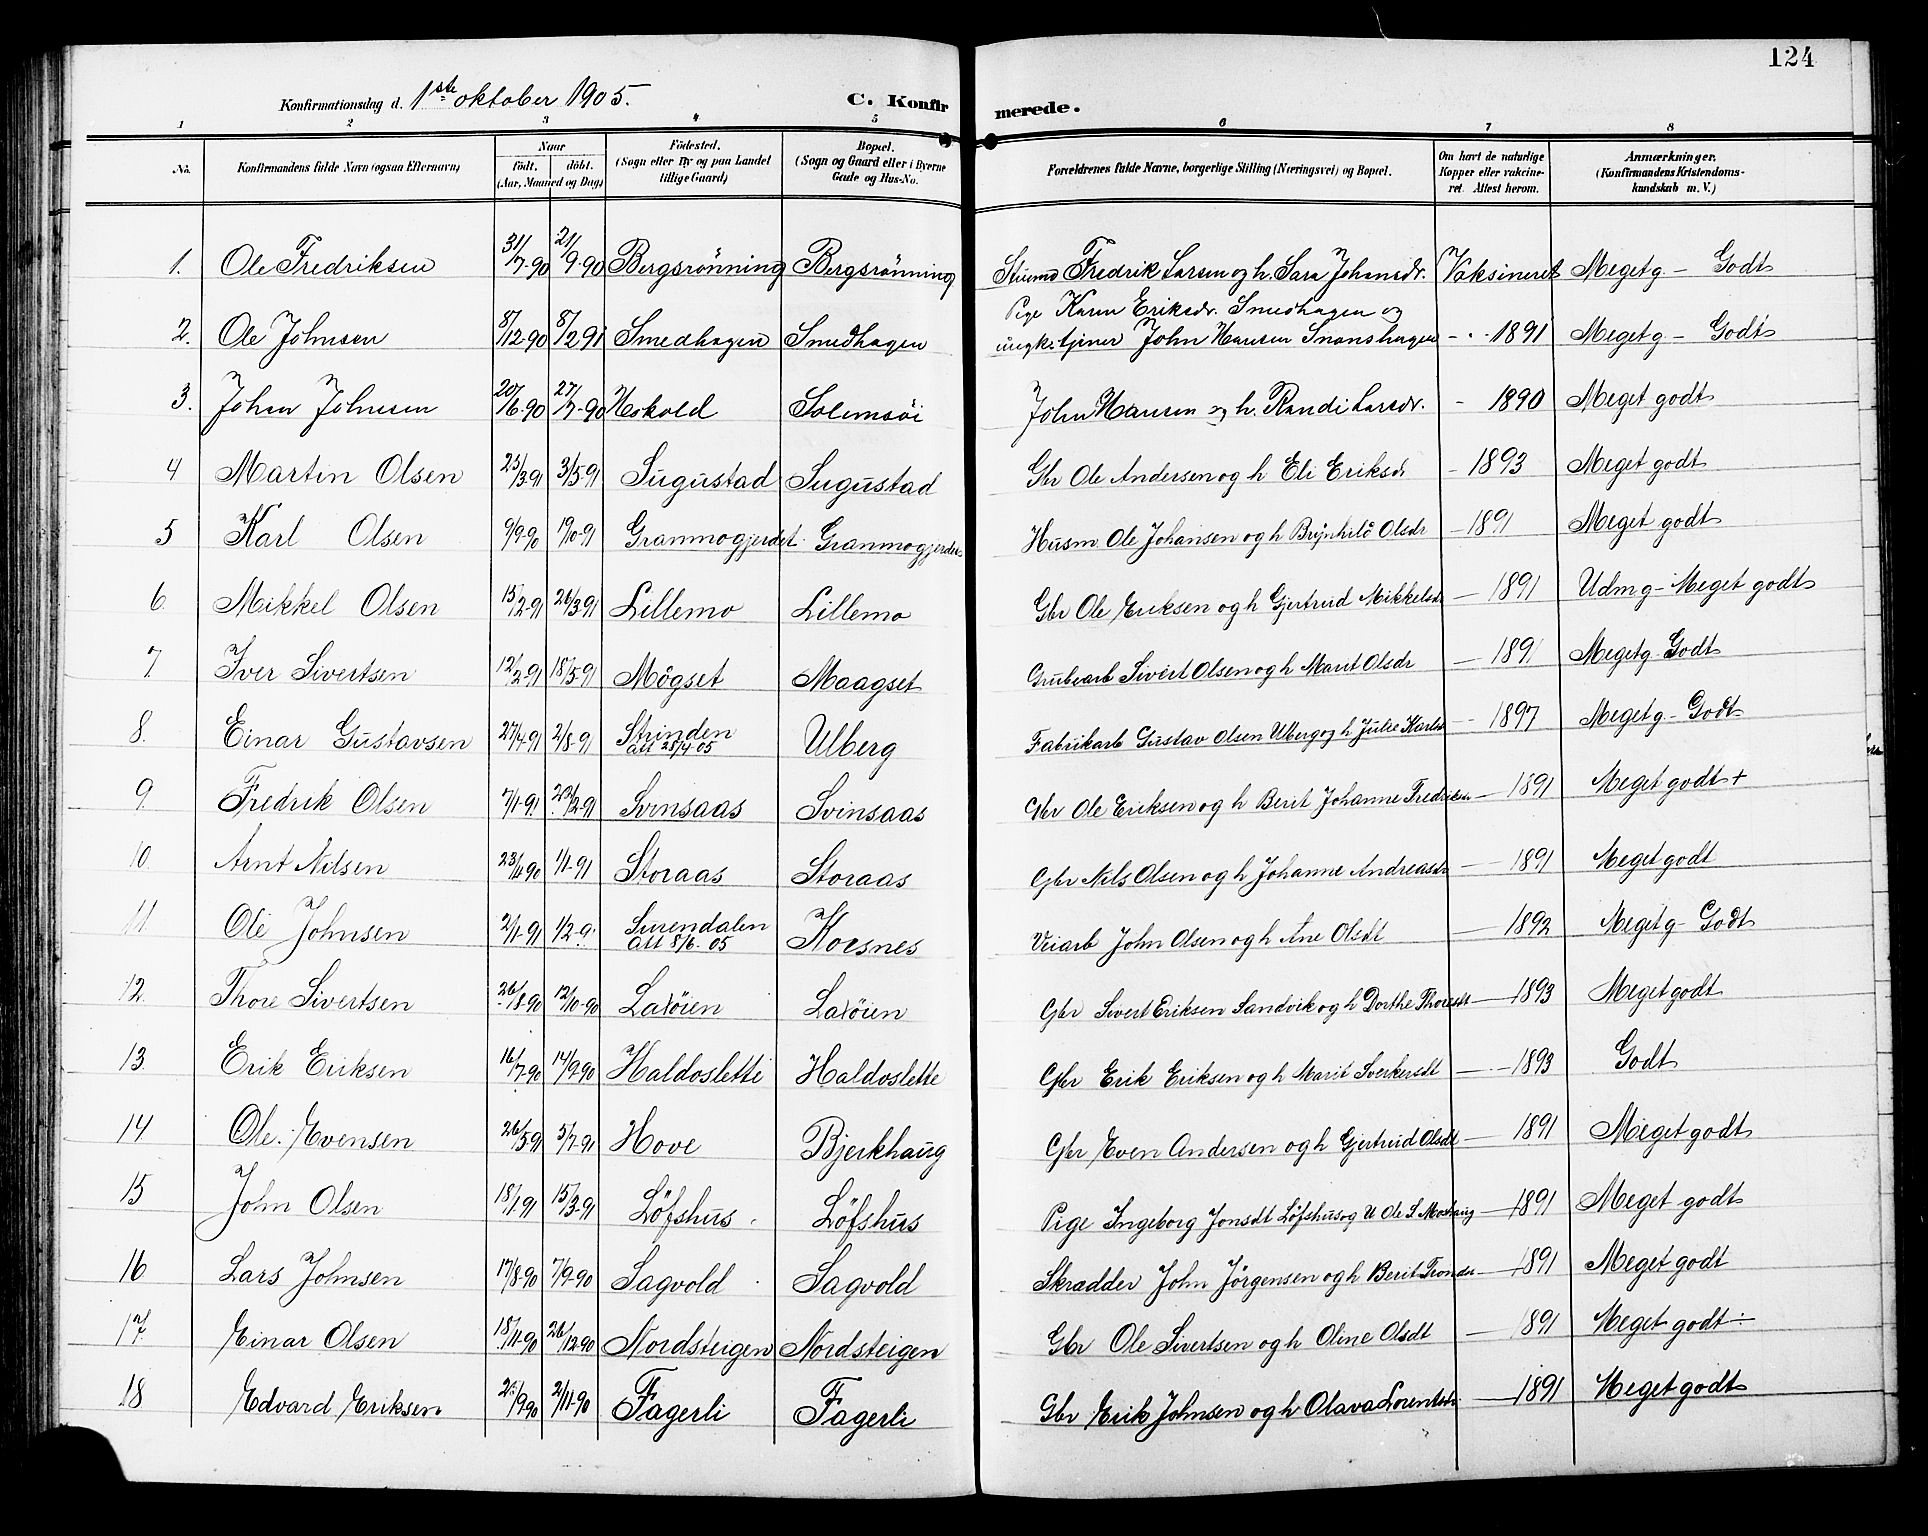 124
Konfirmationsdag d. 1ste oktober 1905. C. Konfirmerede.
1 2 3 4 5 6 7 8
No. Konfirmandens fulde Navn (ogsaa Efternavn) Naar født. døbt. (Aar, Maaned og Dag) Fødested. (Sogn eller By og paa Landet tillige Gaard) Bopæl. (Sogn og Gaard eller i Byerne Gade og Hus-No. Forældrenes fulde Navne, borgerlige Stilling (Næringsvei) og Bopæl. Om havt de naturlige Kopper eller vakcineret. Attest herom. Anmærkninger. (Konfirmandens Kristendomskundskab m. V.)
1. Ole Fredriksen 31/7-90 21/9-90 Bergsrönning Bergsrönning Fredrik Larsen og h. Sara Johansdr. Vaksineret Megetg - Godt
Pige Karen Eriksdr. Smedhagen og
2. Ole Johnsen 8/12-90 8/2 91 Smedhagen Smedhagen ungk. tjener John Hansen - " - 1891 Megetg - Godt
3. John Johnsen 20/6-90 27/7-90 Heskold Solemsöi John Hansen og h. Randi Larsdr. - 1890 Meget godt
4 Martin Olsen 23/3-91 3/5-91 Sugustad Sugustad Gbr Ole Andersen og h Eli Eriksdr - 1893 Meget godt
5 Karl Olsen 9/9-90 19/0-91 Granmogjerdet Granmogjerdet Husm. Ole Johansen og h Brynhild Olsdr - 1891 Meget godt
6. Mikkel Olsen 15/2-91 26/3-91 Lillemo Lillemo Gbr Ole Eriksen og h Gjertrud Mikkelsdr - 1891 Udm g - Meget godt
7. Iver Sivertsen 12/2-91 18/5-91 Mögset Maagset Grubearb Sivert Olsen og h Marit Olsdr - 189. Megetg - Godt
8. Einar Gustavsen 27/4-91 2/8-91 Strinden Ulberg Fabrikarb Gustav Olsen Ulberg og h Julie Karlsd - 1897 Megetg - Godt
att 25/4 05
9. Fredrik Olsen 7/1-91 22/2-91 Svinsaas Svinsaas Gbr Ole Eriksen og h Berit Johanne Fredriksdr - 1891 Meget godt +
10. Arnt Nilsen 23/4-90 1/1-91 Storaas Storaas Gbr Nils Olsen og h Johanne Andreasdr - 1891 Meget godt
11 Ole Johnsen 2/1-91 1/2-9. Surendalen Korsnes Veiarb John Olsen og h Ane Olsdt - 1892 Megetg - Godt
att 8/6. 05
12. Thore Sivertsen 26/8-90 12/10-90 Laxöien Laxöien Gbr Sivert Eriksen Sandvik og h Dorthe Thoresdt - 1893 Meget godt
13 Erik Eriksen 16/7-90 14/9-90 Haldosletti Haldoslette Gbr Erik Eriksen og h Marit Sverkersdt - 1893 Godt
14 Ole Evensen 26/5-91 5/7-91 Hove Bjerkhaug Gbr Even Andersen og h Gjertrud Olsdt - 1891 Meget godt
15 John Olsen 18/1-91 15/3-91 Löfshus Löfshus Pige Ingeborg Jonsdt Löfshus og U Ole S Moshaug - 1891 Meget godt
16 Lars Johnsen 17/8-90 7/9-90 Sagvold Sagvold Skrædder John Jörgensen og h Berit Trondsr - 1891 Meget godt
17. Einar Olsen 18/11-90 26/12-90 Nordsteigen Nordsteigen Gbr Ole Sivertsen og h Oline Olsdt - 1891 Meget godt ÷
18 Edvard Eriksen 2/11-90 Fagerli Fagerli Gbr Erik Johnsen og h Olava Lorentsdr - 1891 Meget godt